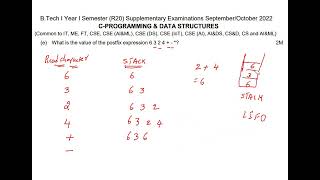 B.Tech I Year I Semester (R20) Supplementary Examinations September/October 2022
C-PROGRAMMING & DATA STRUCTURES
(Common to IT, ME, FT, CSE, CSE (AI&ML), CSE (DS), CSE (IoT), CSE (AI), AI&DS, CS&D, CS and AI&ML)
(e) What is the value of the postfix expression 6 3 2 4 + - *? 2M
Read character STACK 2 + 4 6
6 6 = 6 3
3 6 3 6
2 6 3 2 STACK
4 6 3 2 4 LIFO
+ 6 3 6
-